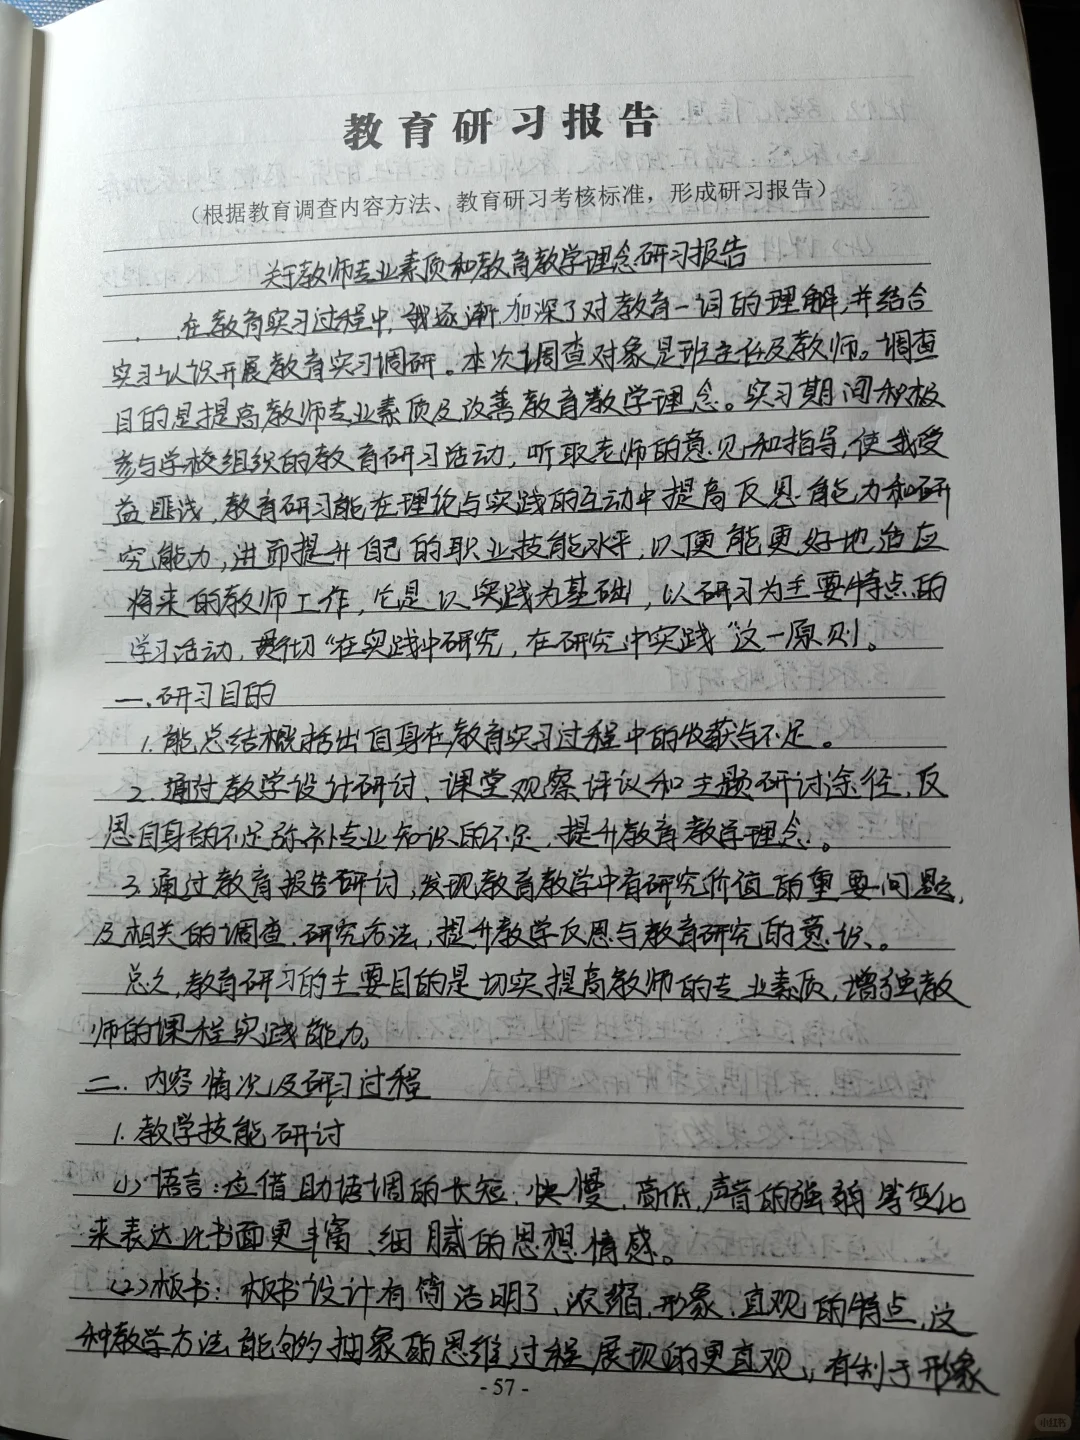 教育研习报告
（根据教育调查内容方法、教育研习考核标准，形成研习报告）
关于教师专业素质和教育教学理念研习报告
在教育实习过程中，我逐渐加深了对教育一词的理解，并结合
实习认识开展教育实习调研。本次调查对象是班主任及教师。调查
目的是提高教师专业素质及改善教育教学理念。实习期间积极
参与学校组织的教育研习活动，听取老师的意见和指导，使我受
益匪浅，教育研习能在理论与实践的互动中提高反思能力和研
究能力，进而提升自己的职业技能水平，以便能更好地适应
将来的教师工作，它是以实践为基础，以研习为主要特点的
学习活动，贯彻“在实践中研究，在研究中实践”这一原则。
一、研习目的
1.能总结概括出自身在教育实习过程中的收获与不足。
2.通过教学设计研讨、课堂观察评议和主题研讨途径，反
思自身的不足弥补专业知识的不足，提升教育教学理念。
3.通过教育报告研讨，发现教育教学中有研究价值的重要问题，
及相关的调查、研究方法，提升教学反思与教育研究的意识。
总之，教育研习的主要目的是切实提高教师的专业素质，增强教
师的课程实践能力。
二、内容情况及研习过程
1.教学技能研讨
(1)语言：应借助语调的长短、快慢、高低，声音的强弱等变化
来表达比书面更丰富、细腻的思想情感。
(2)板书：板书设计有简洁明了、浓缩、形象、直观的特点，这
种教学方法能够的抽象的思维过程展现的更直观，有利于形象
- 57 -
小红书